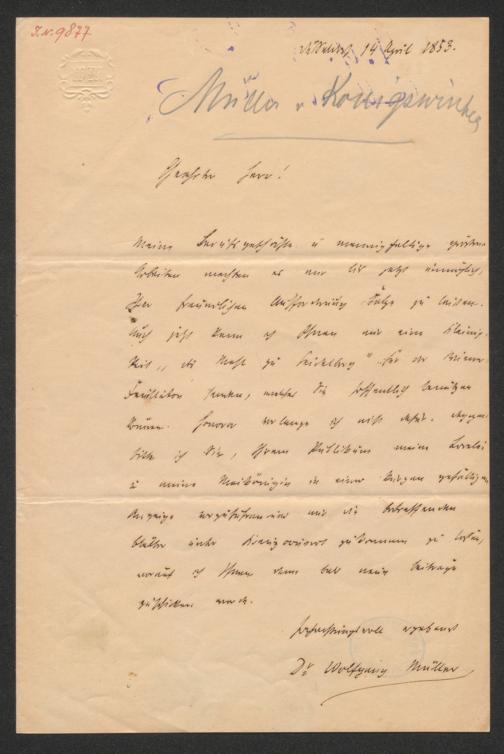 I.N. 9877
Düsseldorf 14 April 1853.
Müller v Königswinter
Geehrter Herr!
Meine Berufsgeschäfte u mannigfaltige größere
Arbeiten machten es mir bis jetzt unmöglich,
Ihrer freundlichen Aufforderung Folge zu leisten.
Auch jetzt kann ich Ihnen nur eine Kleinig-
keit, „die Nacht zu Heidelberg“ für das Wiener
Feuilleton senden, welches Sie hoffentlich benützen
können. Honorar verlange ich nicht dafür. dagegen
bitte ich Sie, Ihrem Publikum meine Lorelei
u meine Maikönigin in einer kurzen gefälligen
Anzeige vorzuführen und mir die betreffenden
Blätter unter Kreuzcouvert zukommen zu lassen,
worauf ich Ihnen dann bald neue Beiträge
zuschicken werde.
Hochachtungsvoll ergebenst
Dr Wolfgang Müller